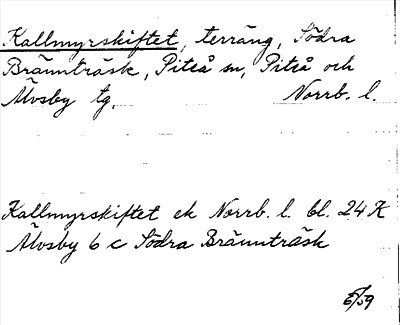 Kallmyrskiftet, terräng, Södra
Brännträsk, Piteå sn, Piteå och
Älvsby tg. Norrb. l.
Kallmyrskiftet ek Norrb. l. bl. 24 K
Älvsby 6 c Södra Brännträsk